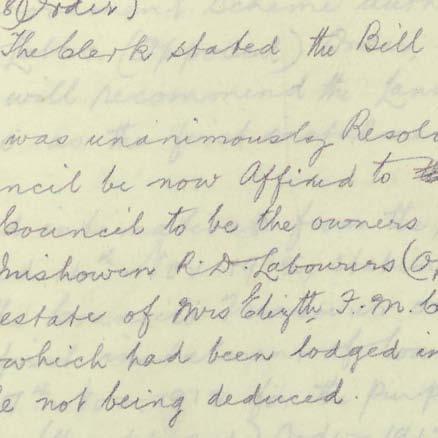 8 Order)
The Clerk stated the Bill
was unanimously Resol
ncil be now Affixed to
Council to be the owners
Inishowen R.D. Labourers (O
estate of Mrs Elizth F. M. C
which had been lodged in
e not being deduced.